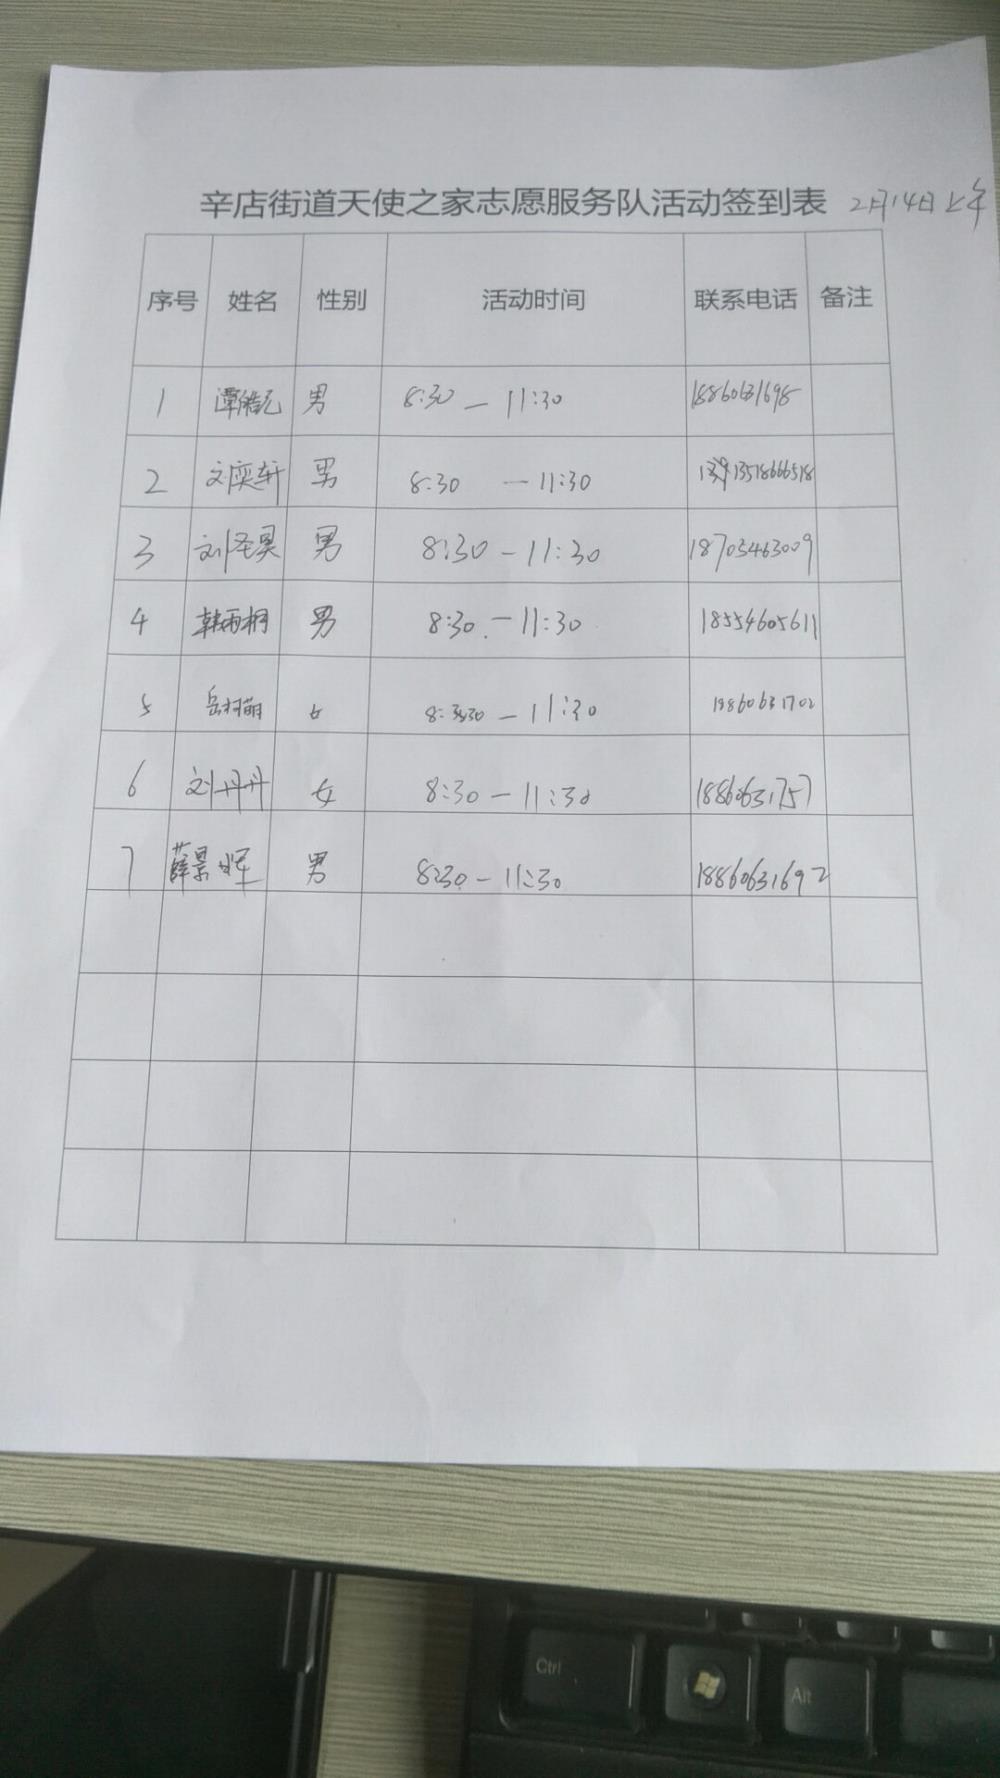 辛店街道天使之家志愿服务队活动签到表 2月14日上午
序号 姓名 性别 活动时间 联系电话 备注
1 谭皓元 男 8:30 — 11:30 18860631698
2 刘奕轩 男 8:30 — 11:30 13518666518
3 刘圣昊 男 8:30 — 11:30 18703463009
4 韩雨桐 男 8:30 — 11:30 18554605611
5 岳柯萌 女 8:30 — 11:30 18860631702
6 刘丹丹 女 8:30 — 11:30 18860631757
7 薛景军 男 8:30 — 11:30 18860631692
Ctrl
Alt